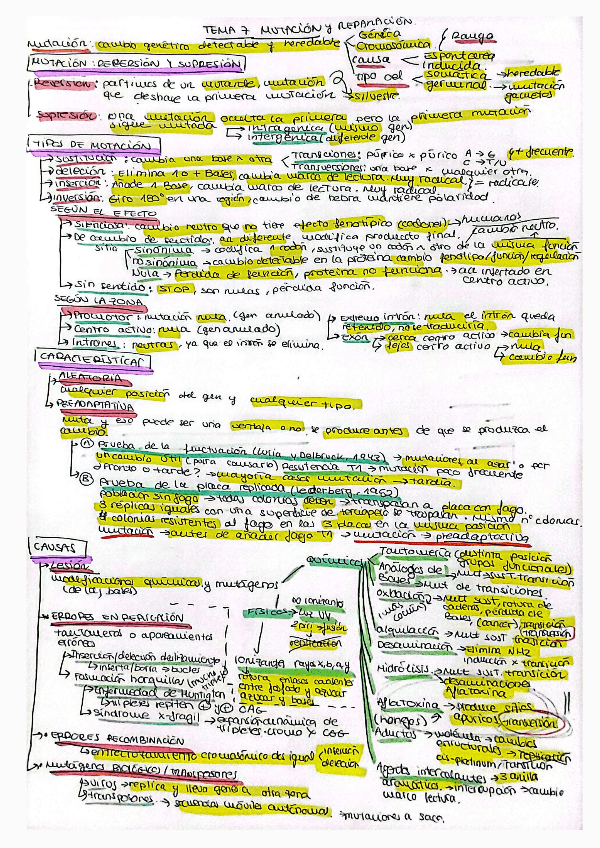 TEMA 7 MUTACIÓN y REPARACIÓN
Mutación: cambio genético detectable y heredable
Génica
Cromosómica
Rango
causa
Espontánea
inducida
tipo cel
somática → heredable
germinal → mutación gametos
MUTACIÓN: REVERSIÓN Y SUPRESIÓN
Reversión: partimos de un mutante, mutación
que deshace la primera mutación → silvestre
Supresión: una mutación oculta la primera pero la primera mutación
sigue mutada
intragénica (mismo gen)
intergénica (diferente gen)
TIPOS DE MUTACIÓN
→ sustitución: cambia una base x otra
Transiciones: púrico x púrico A → G + frecuente
C → T/U
Transversiones: una base x cualquier otra.
→ deleción: Elimina 1 o + Bases, cambia marco de lectura. Muy radical
→ inserción: Añade 1 Base, cambia marco de lectura. Muy radical
= radicales.
→ inversión: Giro 180° en una región, cambio de hebra mantiene polaridad.
SEGÚN EL EFECTO
→ Silenciosa: cambio neutro que no tiene efecto fenotípico (codones) → humanos
cambio neutro.
→ De cambio de sentido: aa diferente modifica producto final.
sinónima → codifica 1 codón, sustituye un codón x otro de la misma función
no sinónima → cambio detectable en la proteína cambio fenotípico/función/regulación
Nula → Pérdida de función, proteína no funciona. → aa insertado en
centro activo.
→ Sin sentido: STOP, son nulas, pérdida función.
SEGÚN LA ZONA
→ Promotor: mutación nula (gen anulado)
→ Centro activo: nula (gen anulado)
→ Intrones: neutras, ya que el intrón se elimina.
→ Extremo intrón: nula el intrón queda
retenido, no se traduciría.
→ exón
cerca centro activo → cambia fun
lejos centro activo → nula
→ cambia fun
CARACTERÍSTICAS
→ ALEATORIA
cualquier posición del gen y cualquier tipo.
→ PREADAPTATIVA
muta y eso puede ser una ventaja o no se produce antes de que se produzca el
cambio.
A Prueba de la fluctuación (Luria y Delbrück, 1943) → mutaciones al azar o por
un cambio útil (para causarlo) Resistencia T1 → mutación poco frecuente
¿Pronto o tarde? → mayoría casos mutación → tardía.
B Prueba de la placa replicada (Lederberg, 1952)
población sin fago → todas colonias
→ traspasan a placa con fago.
3 réplicas iguales con una superficie de terciopelo
mismo nº colonias.
4 colonias resistentes al fago en las 3 placas en la misma posición
mutación → antes de añadir fago T1 → mutación → preadaptativa
CAUSAS
→ Lesión:
modificaciones químicas y mutágenos
(de las bases)
→ ERRORES EN REPLICACIÓN
tautómeros o apareamientos
erróneos
→ Inserción/deleción
inserta/borra → bucles
→ Formación horquillas
→ Enfermedad de Huntington
→ tripletes repiten
CAG
→ síndrome x-fragil → expansión dinámica de
tripletes cromo X CGG
→ ERRORES RECOMBINACIÓN
→ entrecruzamiento cromosómico desigual
inserción
deleción
→ Mutágenos BIOLÓGICO / TRANSPOSONES
→ virus → replica y lleva gen a otra zona
→ transposones → secuencias móviles autónomas.
→ mutaciones a saco.
FÍSICOS
No ionizante
→ Luz UV
replicación
Ionizante: rayos x, b, a, y
rotura enlaces covalente
entre fosfato y azúcar
azúcar y bases
QUÍMICOS
Tautomería (distinta posición
grupos funcionales)
Análogos de
Bases → Mut sust. transición
→ Mut de transiciones
oxidación → Mut sust, rotura de
cadenas, pérdida de
bases (cáncer) transición
transversión
alquilación → Mut sust transición
Desaminación → Elimina NH2
inducción x transición
Hidrólisis → Mut sust. transición
desaminaciones
Aflatoxina
Aflatoxina → produce sitios
(hongos) apúricos (transversión)
Aductos → molécula → cambios
estructurales → replicación
cis-platinum / transición
Agente intercalantes → 3 anillo
aromático → interrupción → cambio
marco lectura.